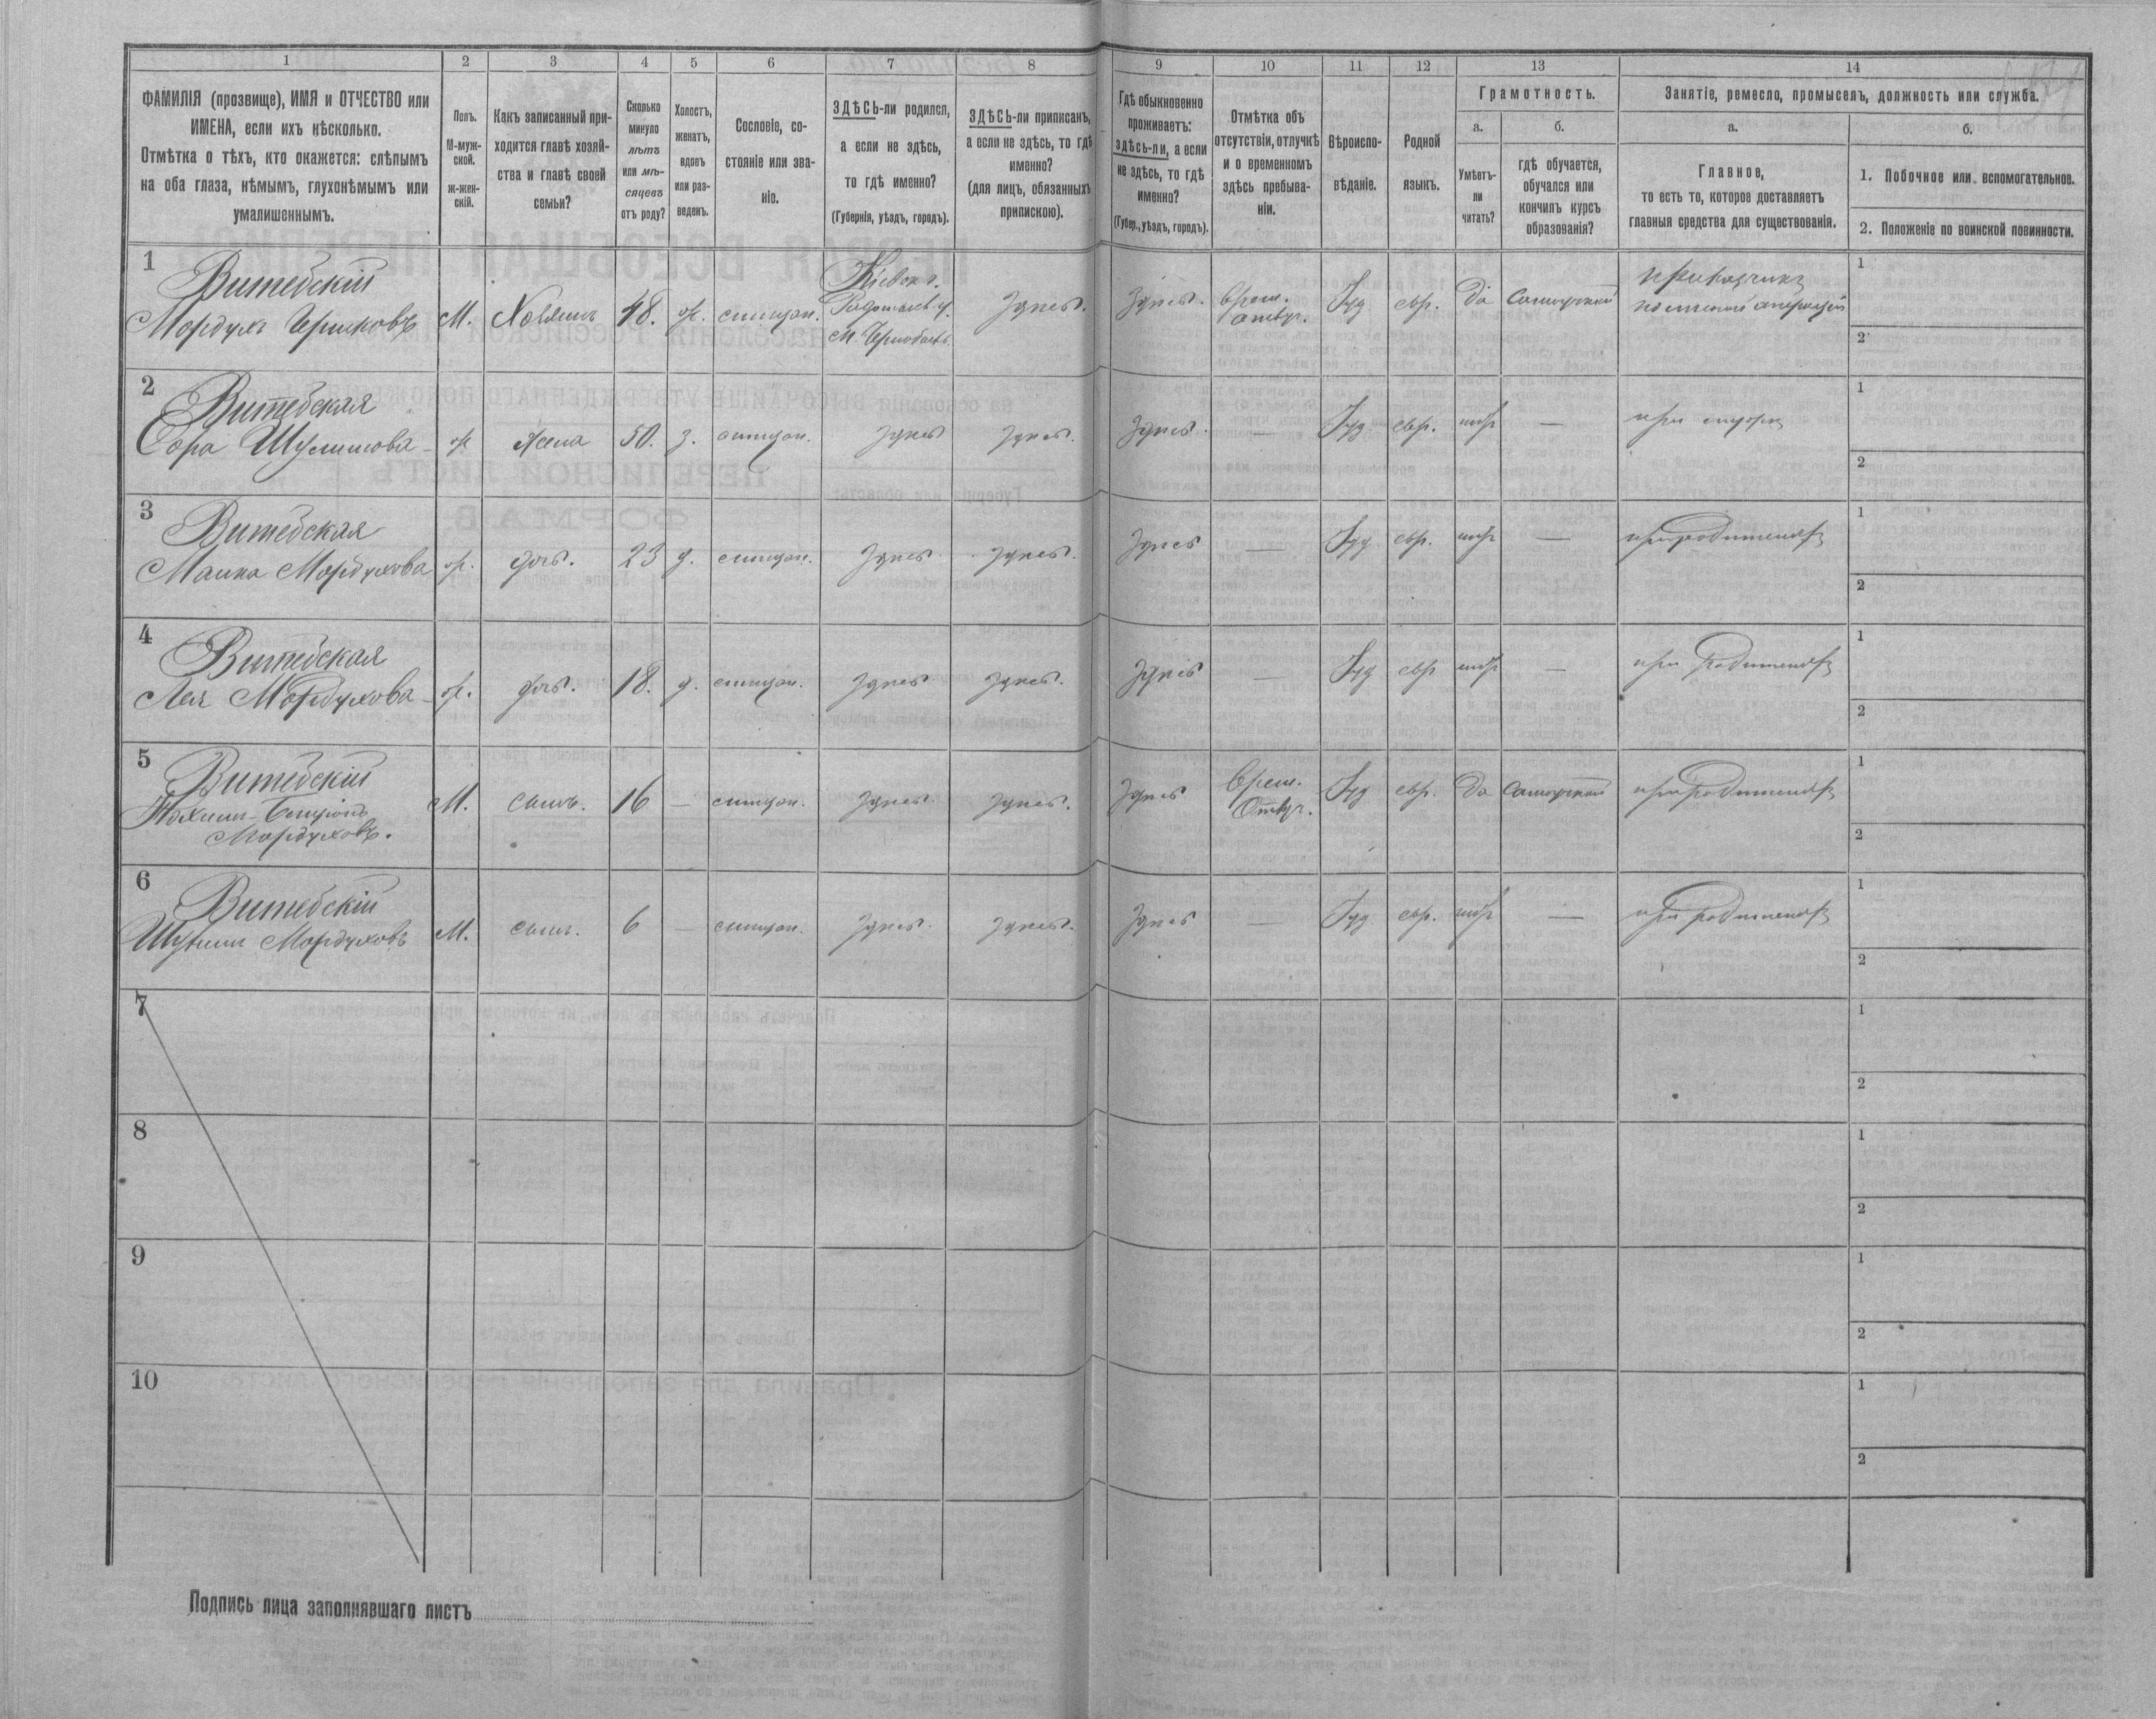 1
2
3
4
5
6
7
8
9
10
11
12
13
14
ФАМИЛІЯ (прозвище), ИМЯ и ОТЧЕСТВО или
ИМЕНА, если ихъ нѣсколько.
Отмѣтка о тѣхъ, кто окажется: слѣпымъ
на оба глаза, нѣмымъ, глухонѣмымъ или
умалишеннымъ.
Полъ.
М-муж-
ской.
ж-жен-
скій.
Какъ записанный при-
ходится главѣ хозяй-
ства и главѣ своей
семьи?
Сколько
минуло
лѣтъ
или мѣ-
сяцевъ
отъ роду?
Холостъ,
женатъ,
вдовъ
или раз-
веденъ.
Сословіе, со-
стояніе или зва-
ніе.
ЗДѢСЬ-ли родился,
а если не здѣсь,
то гдѣ именно?
(Губернія, уѣздъ, городъ).
ЗДѢСЬ-ли приписанъ,
а если не здѣсь, то гдѣ
именно?
(для лицъ, обязанныхъ
припискою).
Гдѣ обыкновенно
проживаетъ:
здѣсь-ли, а если
не здѣсь, то гдѣ
именно?
(Губер., уѣздъ, городъ).
Отмѣтка объ
отсутствіи, отлучкѣ
и о временномъ
здѣсь пребыва-
ніи.
Вѣроиспо-
вѣданіе.
Родной
языкъ.
Грамотность.
а.
Умѣетъ-
ли
читать?
б.
гдѣ обучается,
обучался или
кончилъ курсъ
образованія?
Занятіе, ремесло, промыселъ, должность или служба.
а.
Главное,
то есть то, которое доставляетъ
главныя средства для существованія.
б.
1. Побочное или вспомогательное.
2. Положеніе по воинской повинности.
1
Витебскій
Мордухъ
М. Хозяинъ 48. ж.
Кіевск. г.
Радомысл. у.
М. Чернобыль
здѣсь. Здѣсь.
Врем.
отлуч.
Іуд евр. да
1
2
2
Витебская
Сора
ж жена 50. з. здѣсь здѣсь. Здѣсь — Іуд евр. — при мужѣ
1
2
3
Витебская
Мордухова ж. дочь. 23 д. здѣсь здѣсь. Здѣсь — Іуд евр. — при родителяхъ
1
2
4
Витебская
Лея Мордухова ж. дочь. 18. д. здѣсь здѣсь. Здѣсь — Іуд евр — при родителяхъ
1
2
5
Витебскій
Мордуховъ.
М. сынъ. 16 — здѣсь здѣсь. Здѣсь
Врем.
Отлуч.
Іуд евр. да при родителяхъ
1
2
6
Витебскій
Мордуховъ М. сынъ. 6 — здѣсь. здѣсь. Здѣсь — Іуд евр. — при родителяхъ
1
2
7
1
2
8
1
2
9
1
2
10
1
2
Подпись лица заполнявшаго листъ